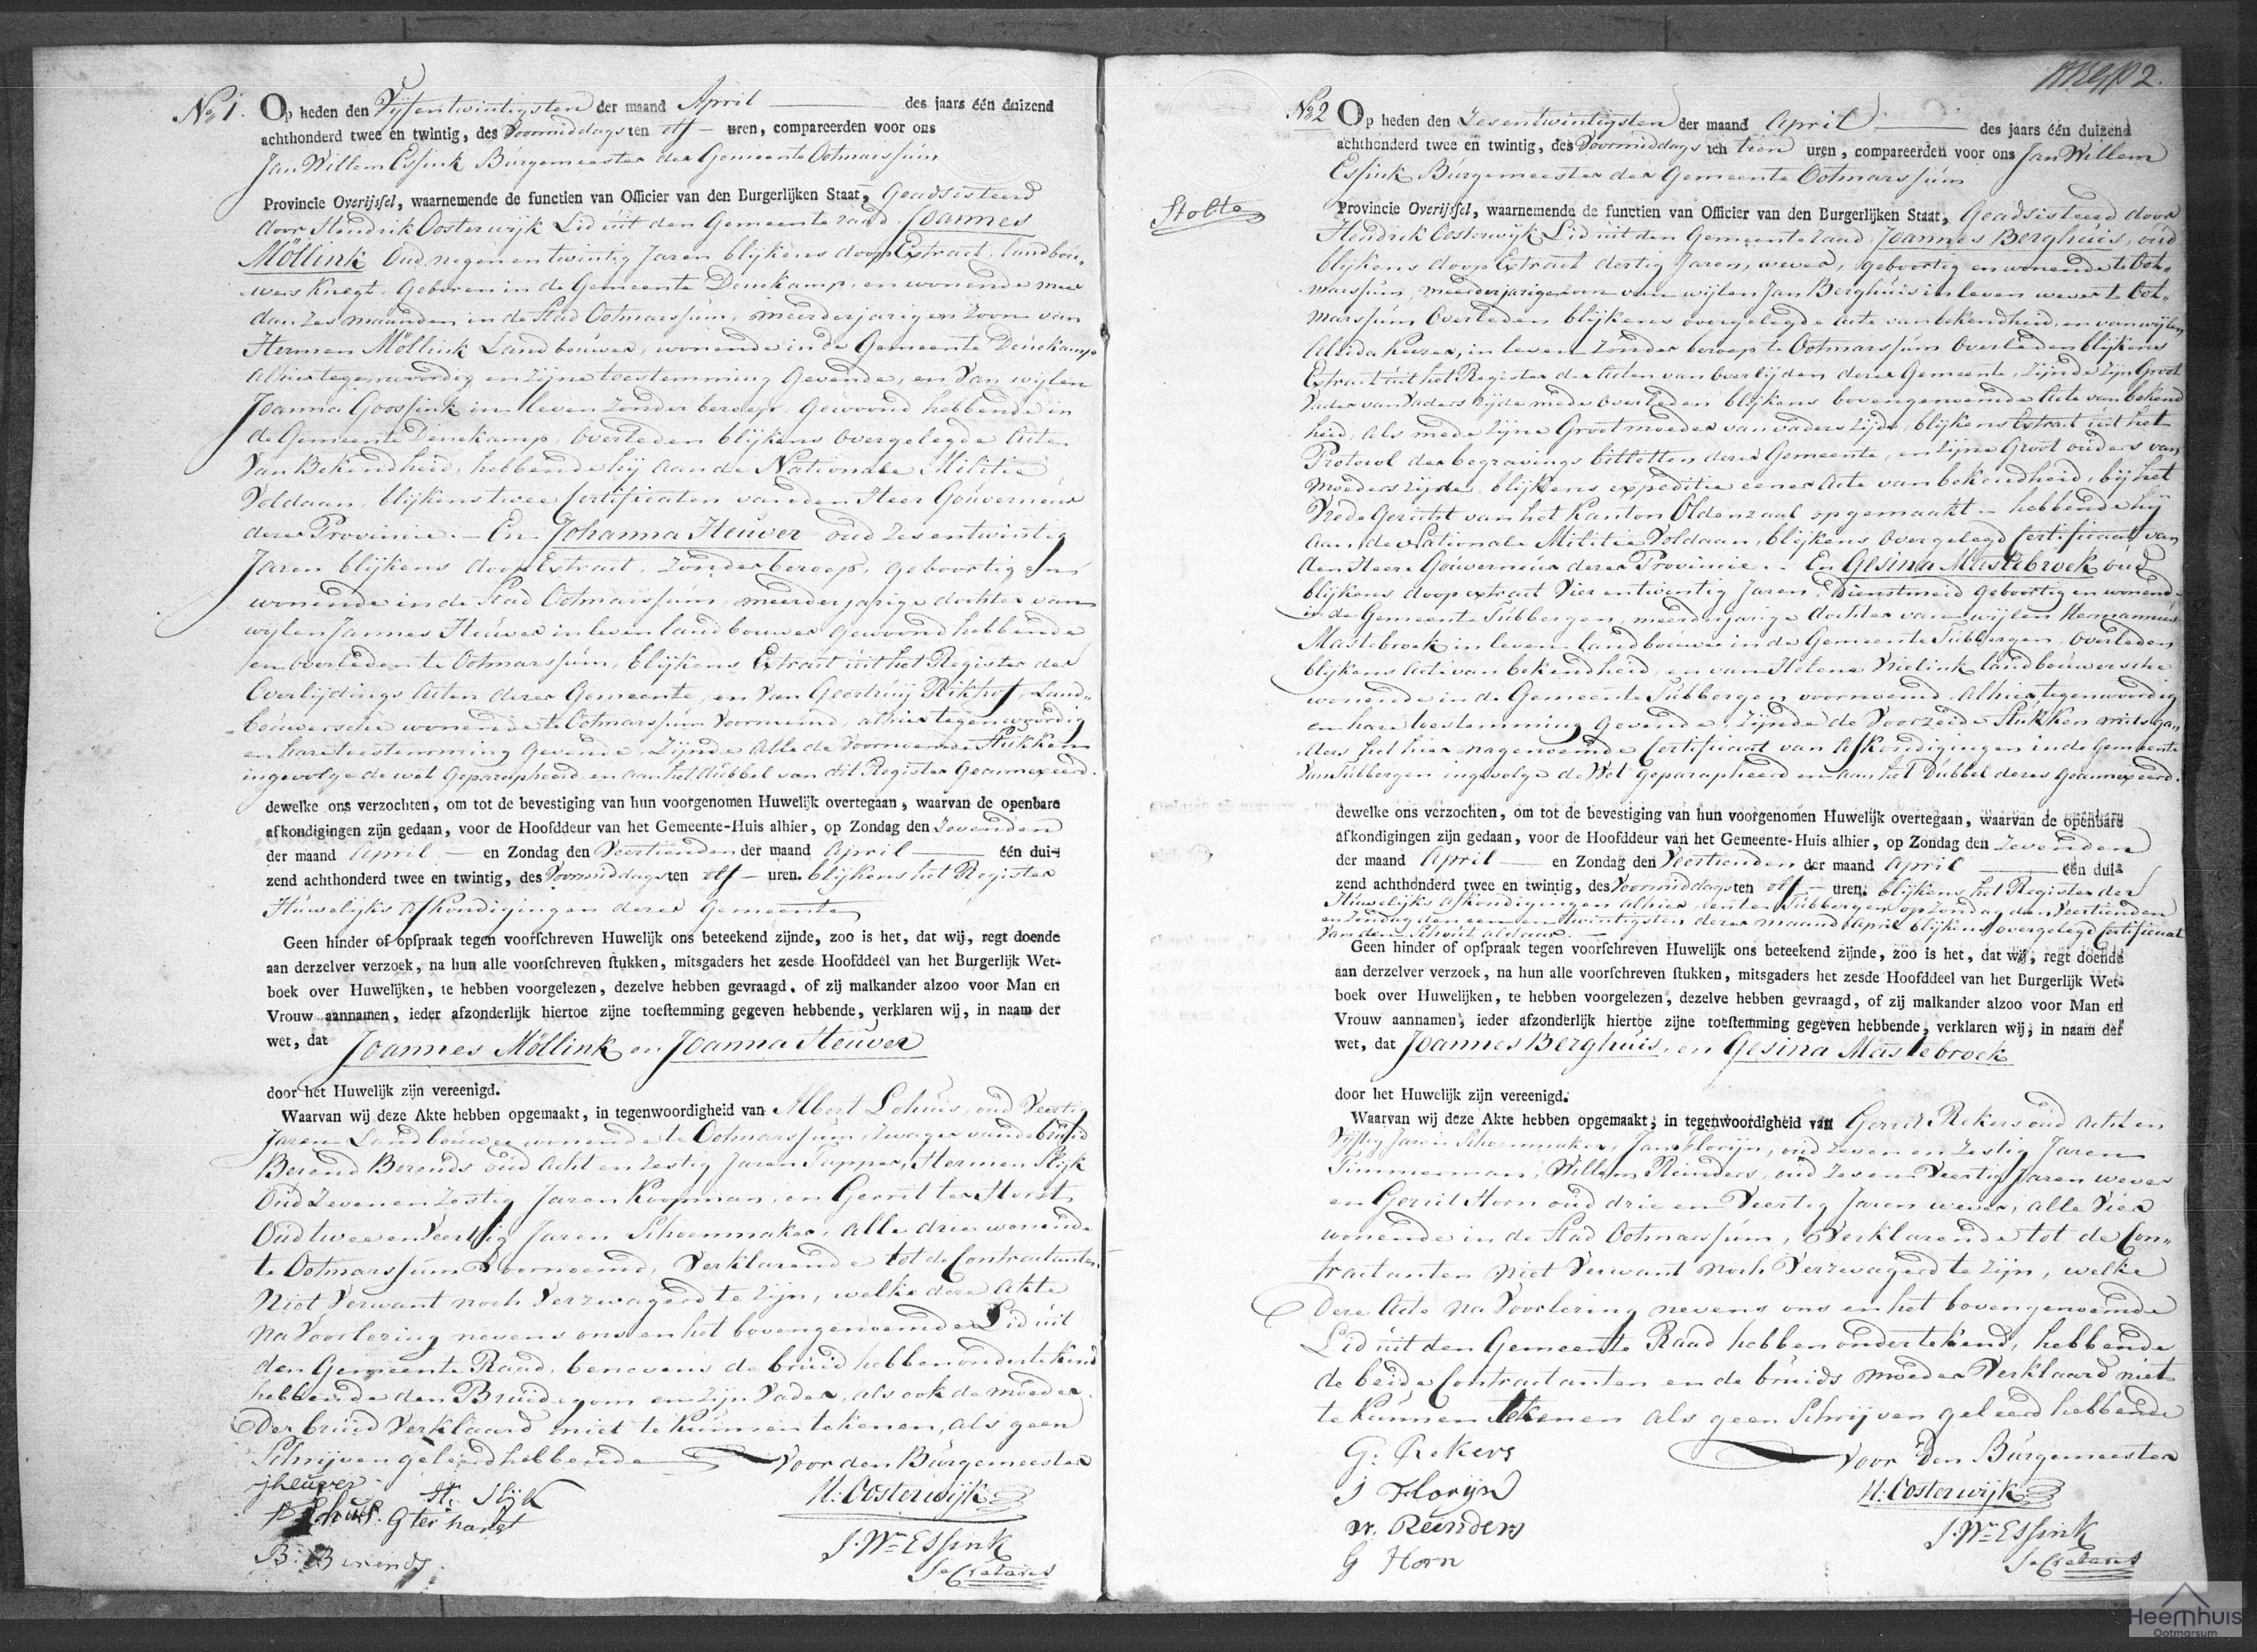 No 1. Op heden den Vyfentwintigsten der maand April des jaars één duizend
achthonderd twee en twintig, des Voormiddags ten elf uren, compareerden voor ons
Jan Willem Essink Burgemeester der Gemeente Ootmarssum
Provincie Overijsſel, waarnemende de functien van Officier van den Burgerlijken Staat, Geadsisteerd
door Hendrik Oosterwijk Lid uit den Gemeente raad Joannes
Möllink Oud negenentwintig Jaren blijkens doop Extract, landbou,,
wers Knegt, Geboren in de Gemeente Denekamp, en wonende meer
dan zes maanden in de Stad Ootmarssum, meerderjarigen Zoon van
Hermen Möllink Landbouwer, wonende in de Gemeente Denekamp
alhier tegenwoordig en zijne toestemming Gevende, en Van wijlen
Joanna Goossink in leven zonder beroep, Gewoond hebbende in
de Gemeente Denekamp, Overleden blijkens Overgelegde Acte
Van Bekendheid, hebbende hij aan de Nationale Militie
Voldaan, blijkens twee Certificaten van den Heer Gouverneur
dezer Provincie. — En Johanna Heuver oud Zesentwintig
Jaren blijkens doop Extract, zonder beroep, geboortig en
wonende in de Stad Ootmarssum, meerderjarige dochter van
wijlen Jannes Heuver in leven landbouwer gewoond hebbende
en Overleden te Ootmarssum, blijkens Extract uit het Register der
Overlijdings Acten dezer Gemeente, en Van Geertruij Rikhof, Land,,
bouwersche wonende te Ootmarssum Voornoemd, alhier tegenwoordig
en hare toestemming Gevende, Zijnde Alle de Voornoemde Stukken
ingevolge de wet Geparapheerd en aan het dubbel van dit Register Geannexeerd.
dewelke ons verzochten, om tot de bevestiging van hun voorgenomen Huwelijk overtegaan, waarvan de openbare
afkondigingen zijn gedaan, voor de Hoofddeur van het Gemeente-Huis alhier, op Zondag den Zevenden
der maand April en Zondag den Veertienden der maand April één dui-
zend achthonderd twee en twintig, des Voormiddags ten elf uren. blijkens het Register
Huwelijks Afkondigingen dezer Gemeente
Geen hinder of opſpraak tegen voorſchreven Huwelijk ons beteekend zijnde, zoo is het, dat wij, regt doende
aan derzelver verzoek, na hun alle voorſchreven ſtukken, mitsgaders het zesde Hoofddeel van het Burgerlijk Wet-
boek over Huwelijken, te hebben voorgelezen, dezelve hebben gevraagd, of zij malkander alzoo voor Man en
Vrouw aannamen, ieder afzonderlijk hiertoe zijne toeſtemming gegeven hebbende, verklaren wij, in naam der
wet, dat Joannes Möllink en Joanna Heuver
door het Huwelijk zijn vereenigd.
Waarvan wij deze Akte hebben opgemaakt, in tegenwoordigheid van Albert Lohuis, oud Veertig
Jaren Landbouwer wonende te Ootmarssum, Zwager van de bruid
Berend Berends oud Acht en Zestig Jaren Tapper, Hermen Slijk
Oud Zevenenzestig Jaren Koopman, en Gerrit ter Horst
Oud twee en Veertig Jaren Schoenmaker, alle drie wonende
te Ootmarssum Voornoemd, Verklarende tot de Contractanten
Niet Verwant noch Verzwagerd te zijn, welke deze Akte
Na Voorlezing nevens ons en het bovengenoemde Lid uit
den Gemeente Raad, benevens de bruid hebben ondertekend
hebbende den Bruidegom en zijn Vader, als ook de moeder
Der bruid Verklaard niet te kunnen tekenen, als geen
Schrijven geleerd hebbende Voor den Burgemeester
jheuver H. Slijk H: Oosterwijk
Lohuis. G ter horst
J. Wm Essink
B: Berends. Secretaris
2.
No 2 Op heden den Zesentwintigsten der maand April des jaars één duizend
achthonderd twee en twintig, des Voormiddags ten tien uren, compareerden voor ons Jan Willem
Essink Burgemeester der Gemeente Ootmarssum
Stolte
Provincie Overijsſel, waarnemende de functien van Officier van den Burgerlijken Staat, Geadsisteerd door
Hendrik Oosterwijk Lid uit den Gemeente Raad, Joannes Berghuis, oud
blijkens doop Extract dertig Jaren, wever, geboortig en wonende te Oot,,
marssum, meerderjarigen zoon van wijlen Jan Berghuis in leven wever te Oot,,
marssum Overleden blijkens overgelegde Acte van bekendheid, en van wijlen
Aleida Keizer, in leven zonder beroep te Ootmarssum Overleden blijkens
Extract uit het Register der Acten van Overlijden dezer Gemeente, zijnde zijn Groot
Vader van Vaders zijde mede Overleden blijkens bovengenoemde Acte van bekend
heid, als mede zijne Grootmoeder van vaders zijde, blijkens Extract uit het
Protocol der begravings billetten dezer Gemeente, en zijne Groot ouders van
moeders zijde, blijkens expeditie eener Acte van bekendheid, bij het
Vrede Gericht van het Kanton Oldenzaal opgemaakt. — hebbende hij
aan de Nationale Militie Voldaan, blijkens Overgelegd Certificaat van
den Heere Gouverneur dezer Provincie. — En Gesina Mastebroek oud
blijkens doop extract Vier entwintig Jaren, Dienstmeid Geboortig en wonende
in de Gemeente Tubbergen, meerderjarige dochter van wijlen Hermannus
Mastebroek in leven landbouwer in de Gemeente Tubbergen, Overleden
blijkens Acte van bekendheid, en van Helena Vrielink landbouwersche
wonende in de Gemeente Tubbergen voornoemd, alhier tegenwoordig
en hare toestemming Gevende, zijnde de Voorzeide Stukken mitsga,,
ders het hier nagenoemde Certificaat van Afkondigingen in de Gemeente
Van Tubbergen ingevolge de Wet Geparapheerd en aan het Dubbel dezes Geannexeerd.
dewelke ons verzochten, om tot de bevestiging van hun voorgenomen Huwelijk overtegaan, waarvan de openbare
afkondigingen zijn gedaan, voor de Hoofddeur van het Gemeente-Huis alhier, op Zondag den Zevenden
der maand April en Zondag den Veertienden der maand April één dui-
zend achthonderd twee en twintig, des Voormiddags ten elf uren. blijkens het Register der
Huwelijks Afkondigingen alhier, en te Tubbergen op Zondag den Veertienden
en Zondag den een en twintigsten dezer maand April blijkens overgelegd Certificaat
Van den Schout aldaar. —
Geen hinder of opſpraak tegen voorſchreven Huwelijk ons beteekend zijnde, zoo is het, dat wij, regt doende
aan derzelver verzoek, na hun alle voorſchreven ſtukken, mitsgaders het zesde Hoofddeel van het Burgerlijk Wet-
boek over Huwelijken, te hebben voorgelezen, dezelve hebben gevraagd, of zij malkander alzoo voor Man en
Vrouw aannamen, ieder afzonderlijk hiertoe zijne toeſtemming gegeven hebbende, verklaren wij, in naam der
wet, dat Joannes Berghuis, en Gesina Mastebroek
door het Huwelijk zijn vereenigd.
Waarvan wij deze Akte hebben opgemaakt, in tegenwoordigheid van Gerrit Rekers oud Acht en
Vijftig Jaren Schoenmaker, Jan Florijn, oud Zeven en Zestig Jaren
Timmerman, Willem Reinders, oud Zeven en Veertig Jaren wever
en Gerrit Horn oud drie en Veertig Jaren wever, alle Vier
wonende in de Stad Ootmarssum, Verklarende tot de Con,,
tractanten Niet Verwant noch Verzwagerd te zijn, welke
Deze Acte na Voorlezing nevens ons en het bovengenoemde
Lid uit den Gemeente Raad hebben ondertekend, hebbende
de beide Contractanten en de bruids moeder Verklaard niet
te kunnen tekenen als geen Schrijven geleerd hebbende
G: Rekers Voor den Burgemeester
J Florijn H: Oosterwijk
W. Reinders J. Wm Essink
G Horn Secretaris
Heemhuis
Ootmarsum